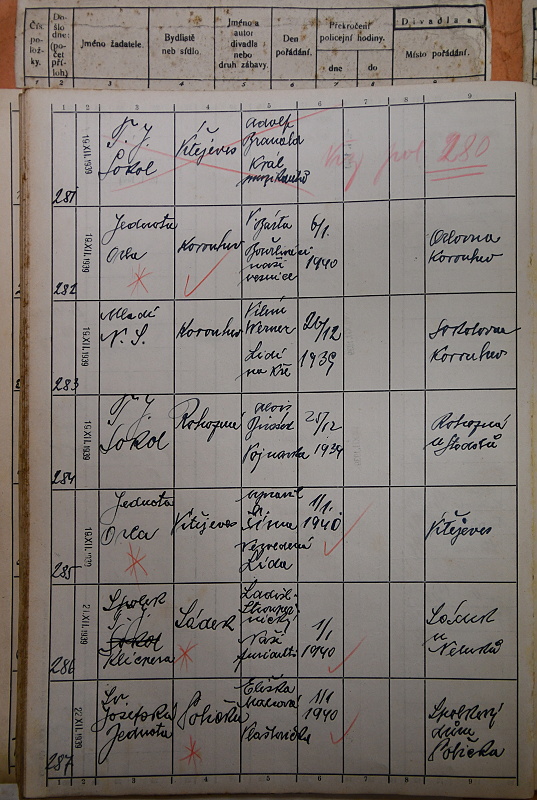 Čís.
polož-
ky.
Do-
šlo
dne:
(po-
čet
pří-
loh)
Jméno žadatele.
Bydliště
neb sídlo.
Jméno a
autor
divadla
nebo
druh zábavy.
Den
pořádání.
Překročení
policejní hodiny.
dne
do
Divadla a
Místo pořádání.
1 2 3 4 5 6 7 8 9
1 2 3 4 5 6 7 8 9
281
19.XII.1939
T. J.
Sokol
Křejeves
Adolf
Branald
Král
muzikantů
Viz pol 280
282
19.XII.1939
Jednota
Orla
Korouhev
V. Bárta
naší
vesnice
6/1.
1940
Orlovna
Korouhev
283
19.XII.1939
Mladí
N. S.
Korouhev
Vilém
Werner
Lidi
na kře
26/12
1939
Sokolovna
Korouhev
284
19.XII.1939
T. J.
Sokol
Rohozná
Alois
Jirásek
Vojnarka
25/12
1939
Rohozná
285
19.XII.1939
Jednota
Orla
Šíma
Nezvedená
Lída
1/1.
1940
286
21.XII.1939
Spolek
Sokol
Klicpera
Sádek
Ladisl.
Stroupež-
nický
Naši
furianti
1/1
1940
Sádek
u
287
22.XII.1939
Sv.
Josefská
Jednota
Polička
Eliška
1/1
1940
Spolkový
dům
Polička
1 2 3 4 5 6 7 8 9